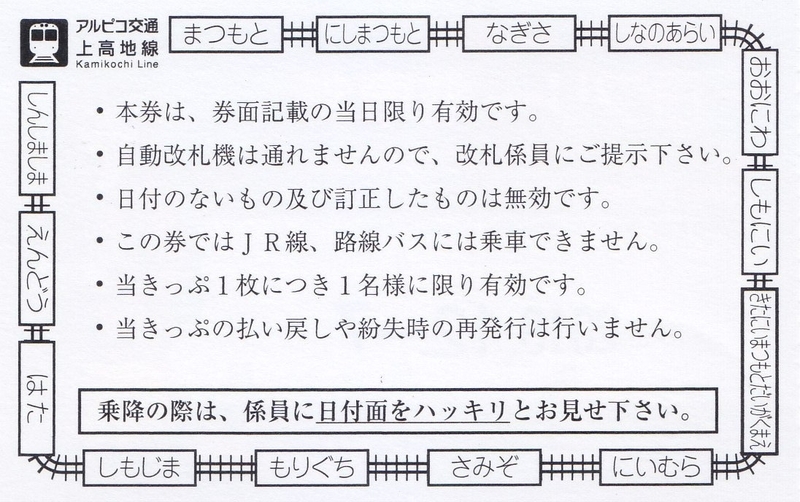 アルピコ交通
上高地線
Kamikochi Line
まつもと
にしまつもと
なぎさ
しなのあらい
おおにわ
しもにい
きたにいまつもとだいがくまえ
にいむら
さみぞ
もりぐち
しもじま
はた
えんどう
しんしましま
・本券は、券面記載の当日限り有効です。
・自動改札機は通れませんので、改札係員にご提示下さい。
・日付のないもの及び訂正したものは無効です。
・この券ではＪＲ線、路線バスには乗車できません。
・当きっぷ１枚につき１名様に限り有効です。
・当きっぷの払い戻しや紛失時の再発行は行いません。
乗降の際は、係員に日付面をハッキリとお見せ下さい。